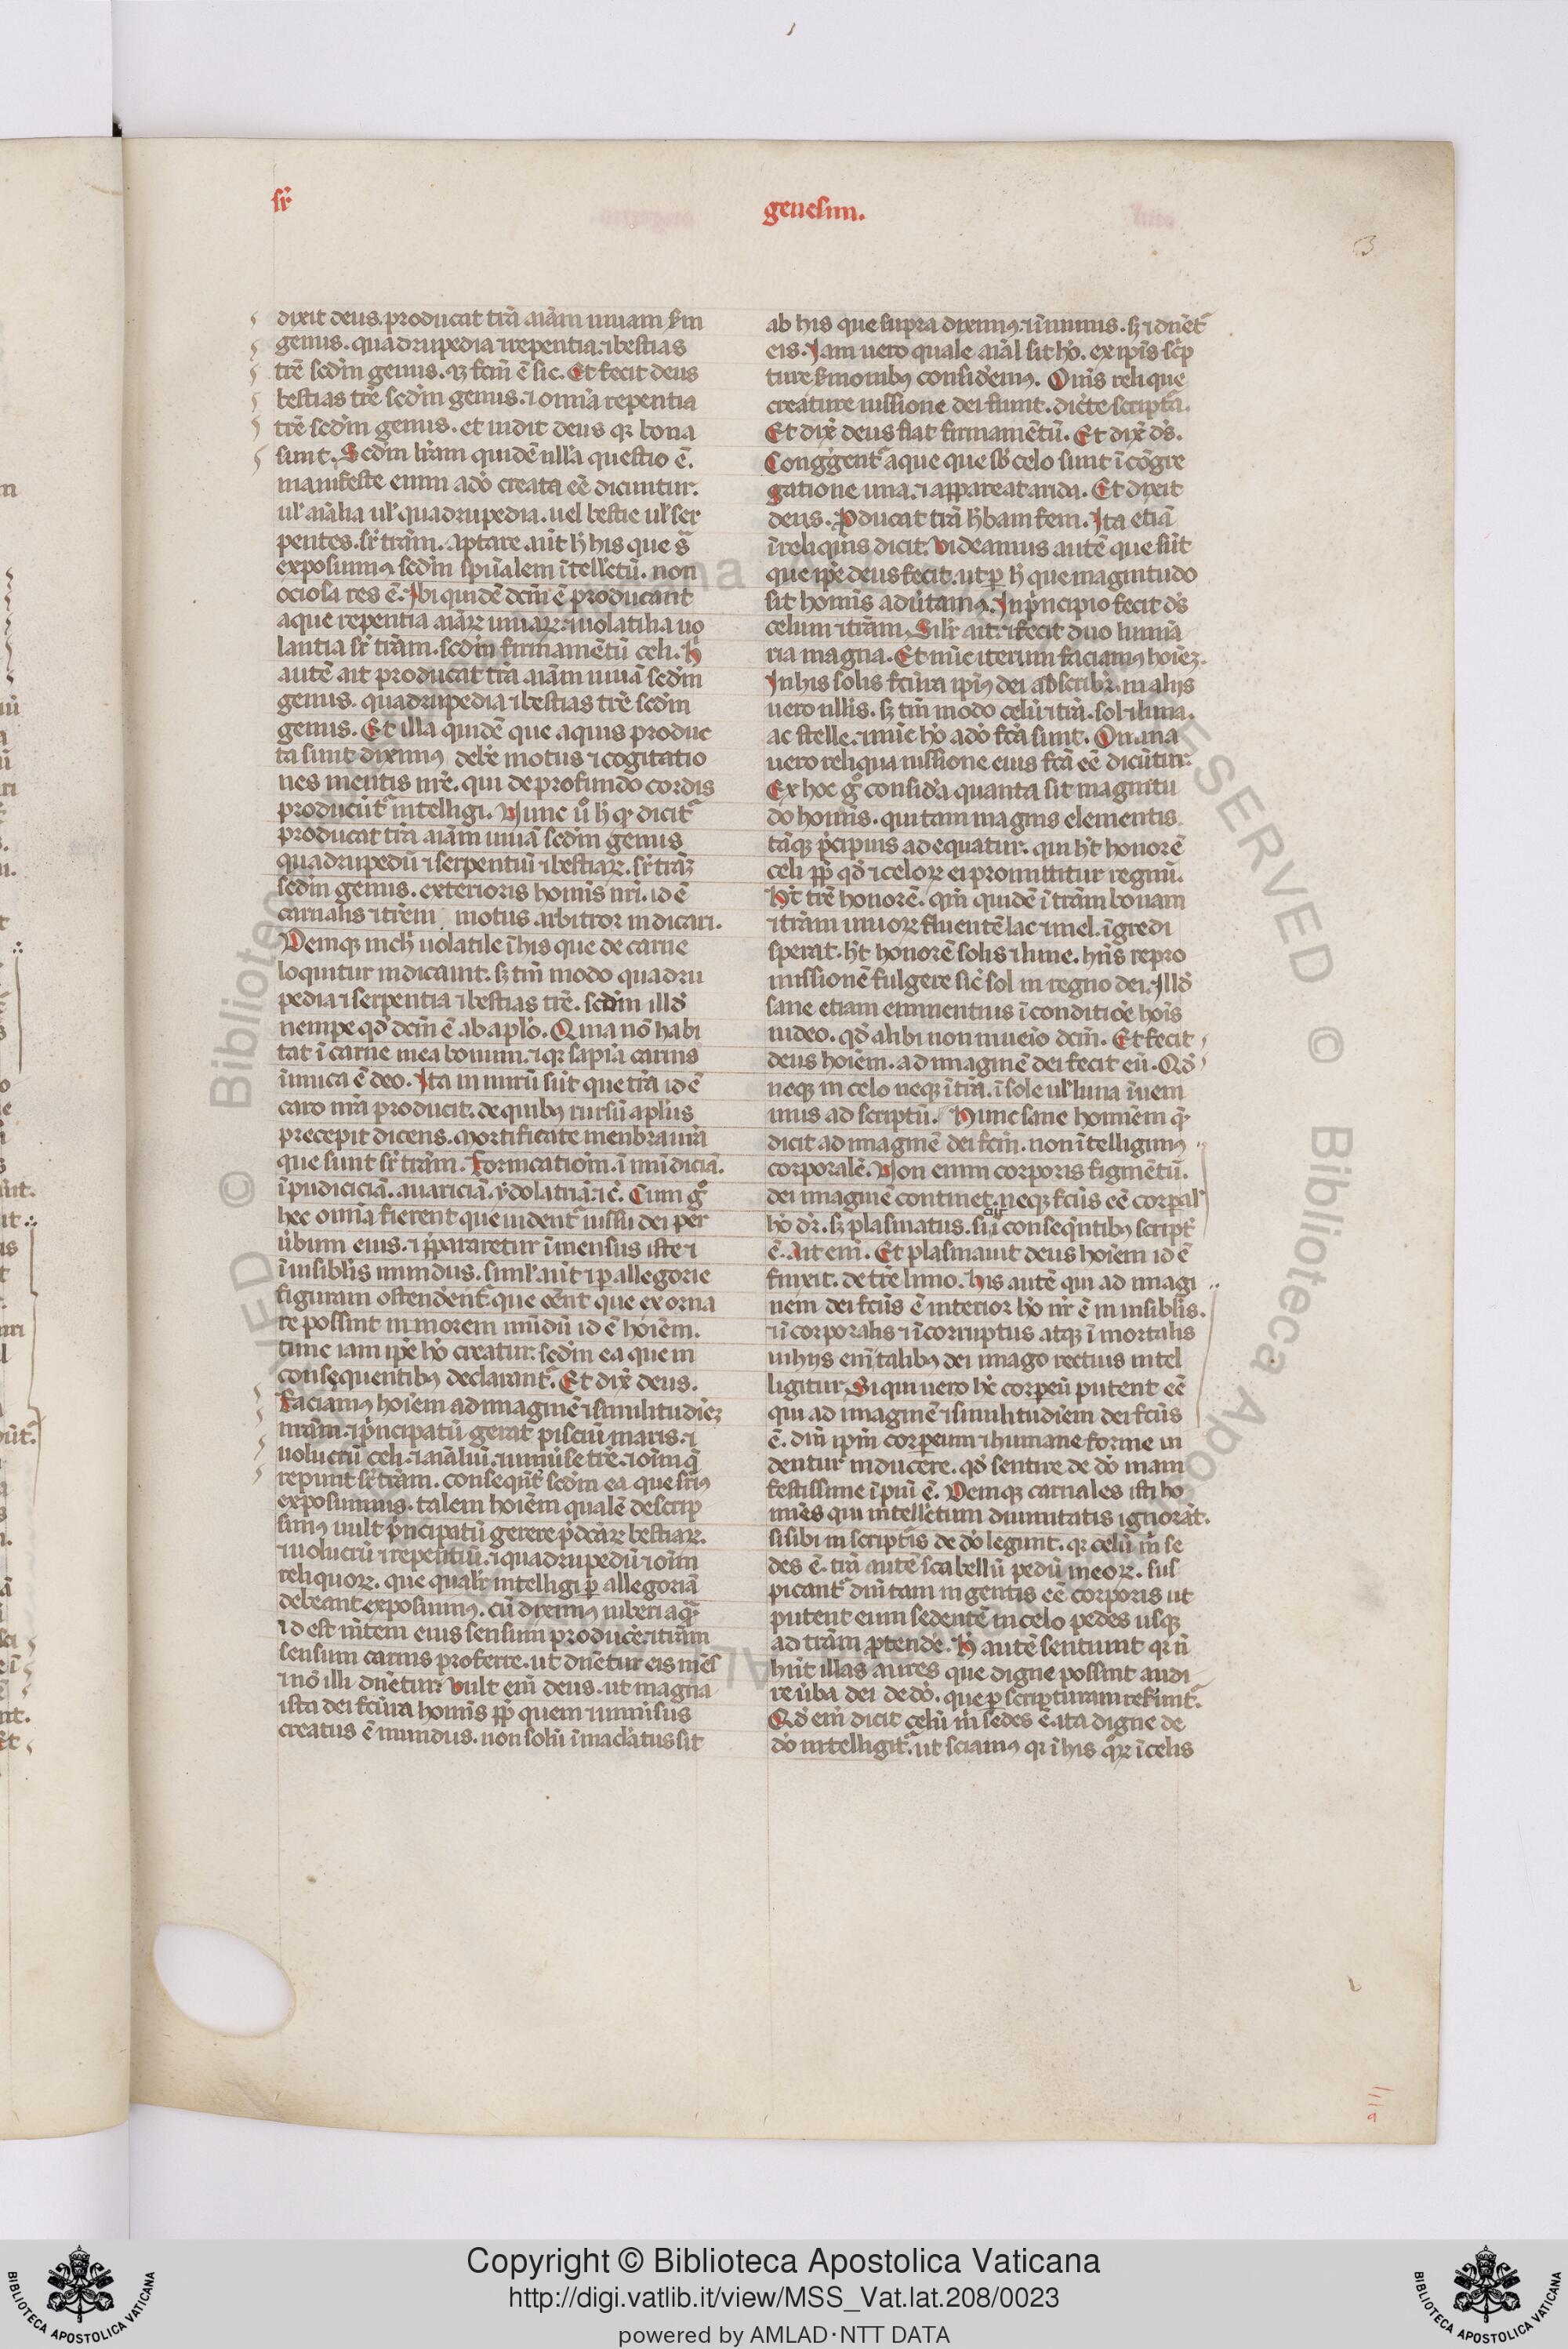 sr̄
genesim.
3
dixit deus. producat trā aiām uiuam sm̄
genus. quadrupedia ⁊ repentia. ⁊ bestias
trē scd̄m genus. ⁊ fcm̄ ē sic. Et fecit deus
bestias trē scd̄m genus. ⁊ omīa repentia
trē scd̄m genus. et uidit deus qꝛ bona
sunt. Scd̄m lr̄am quidē nlla questio ē.
manifeste enim a dō creata eē dicuntur.
ul' aīalia ul' quadrupedia. uel bestie ul' ser
pentes. sr̄ trām. Aptare aūt h̄ his que s̄
exposuimꝰ scd̄m spūalem ītellc̄tū. non
ociosa res ē. Ibi quidē dcm̄ ē producant
aque repentia aiāꝝ uiuaꝝ. ⁊ uolatilia uo
lantia sr̄ trām. scd̄m firmamētū celi. h̄
autē ait producat trā aiām uiuā scd̄m
genus. quadrupedia ⁊ bestias trē scd̄m
genus. Et illa quidē que aquis produc
ta sunt diximꝰ debē motus ⁊ cogitatio
nes mentis nr̄e. qui de profundo cordis
producūt᷑ intelligi. Nunc u͛o h̄ qꝫ dicit᷑
producat trā aiām uiuā scd̄m genus
quadrupedū ⁊ serpentiū ⁊ bestiaꝝ. sr̄ trāꝫ
scd̄m genus. exterioris homīs nrī. id ē
carnalis ⁊ trēni motus arbitror indicari.
Deniqꝫ nich' uolatile ī his que de carne
loquitur indicauit. sꝫ tm̄ modo quadru
pedia ⁊ serpentia ⁊ bestias trē. scd̄m illđ
nempe qđ dcm̄ ē ab aplō. Quia nō habi
tat ī carne mea bonum. ⁊ qꝛ sapīa carnis
inīmica ē deo. Ita ni mirū sūt que trā id ē
caro nrā producit. de quibꝰ rursū aplūs
precepit dicens. Mortificate menbra urā
que sunt sr̄ trām. Fornicatiom̄. ī mūdiciā.
īpudiciciā. auariciā. ydolatriā. ⁊ c̄. Cum g͛o
hec omīa fierent que uident᷑ iussu dei per
ūbum eius. ⁊ p̄pararetur īmensus iste ⁊
īuisibl'is mundus. siml' aūt ⁊ ꝑ allegorie
figuram ostendēnt᷑. que eēnt que exorna
re possint minorem mūdū id ē hoīem.
tunc iam ipē hō creatur. scd̄m ea que in
consequentibꝰ declarant᷑. Et dix̄ deus.
Faciamꝰ hoīem ad imaginē ⁊ similitudīeꝫ
nrām. ⁊ p̄ncipatū gerat pisciū maris. ⁊
uolucrū celi. ⁊ aīaliū. ⁊ uniūse trē. ⁊ oīm q̄
repunt sr̄ trām. conseqn̄t᷑ scd̄m ea que sr̄iꝰ
exposuimus. talem hoīem qualē descrip
simꝰ uult p̄ncipatū gerere p̄dc̄aꝝ bestiaꝝ.
⁊ uolucrū ⁊ repentiū. ⁊ quadrupedū ⁊ oīm
reliquoꝝ. que qualr̄ intelligi ꝑ allegoriā
debeant exposuimꝰ. cū diximꝰ iuberi aq̄ꝫ
id est mn̄tem eius sensum producē. ⁊ trām
sensum carnis proferre. ut dn̄etur eis mēs
⁊ nō illi dn̄etur. Vult enī deus. ut magna
ista dei fcūra homīs ꝓp̄ quem ⁊ uniūsus
creatus ē mundus. non solū īmacl'atus sit
ab his que supra diximꝰ. ⁊ īmunis. sꝫ ⁊ dn̄et᷑
eis. Iam uero quale aiāl sit hō. ex ipīs sc̄p
ture s͛monibꝰ considemꝰ. Omīs relique
creature iussione dei fiunt. dicēte scriptā.
Et dix̄ deus fiat firmamētū. Et dix̄ dꝰs.
Congg̓ent᷑ aque que sb̄ celo sunt ī cōgre
gatione una. ⁊ appareat arida. Et dixit
deus. Ꝓducat trā h̓bam feni. Ita etiā
ī reliquīs dicit. Videamus autē que sūt
que ipē deus fecit. ut ꝑ h̄ que magnitudo
sit homīs aduītamꝰ. In p̓ncipio fecit dꝰs
celum ⁊ trām. Sil'r ait. ⁊ fecit duo lumīa
ria magna. Et nūc iterum faciamꝰ hoīeꝫ.
In his solis fcūra ipīꝰ dei adscribit᷑. in alijs
uero nllīs. sꝫ tm̄ modo celū ⁊ trā. sol ⁊ luna.
ac stelle. ⁊ nūc hō a dō fc̄a sunt. Om̄ia
uero reliqua iussione eius fc̄a eē dicūtur.
Ex hoc g͛ consid̓a quanta sit magnitu
do homīs. qui tam magnis elementis
tāqꝫ p̄cipuis ad equatur. qui h̄t honorē
celi ꝓp̄ qđ ⁊ celoꝝ ei promittitur regnū.
H̄t trē honorē. qm̄ quidē ī trām bonam
⁊ trām uiuoꝝ fluentē lac ⁊ mel. īgredi
sperat. h̄t honorē solis ⁊ lune. hn̄s repro
missionē fulgere sic̄ sol in regno dei. Illđ
sane etiam eminentius ī conditiōe hoīs
uideo. qđ alibi non inuenio dcm̄. Et fecit
deus hoīem. ad imaginē dei fecit eū. Qđ
neqꝫ in celo neqꝫ ī trā. ī sole ul' luna īueni
mus adscriptū. Hunc sane hominēm qꝫ
dicit ad imaginē dei fcm̄. non ītelligimꝰ
corporalē. Non enim corporis figmētū.
dei imaginē continet. neqꝫ fcūs eē corꝑal'
hō dr̄. sꝫ plasmatus. siī conseqn̄tibꝰ script᷑
ē. Ait enī. Et plasmauit deus hoīem id ē
finxit. de trē limo. His autē qui ad imagi
nem dei fcūs ē interior hō nr̄ ē inuisibl'is.
⁊ ī corporalis ⁊ ī corruptus atqꝫ ī mortalis
in hijs enī talibꝰ dei imago rectius intel
ligitur. Si qui uero hc̄ corꝑeū putent eē
qui ad imaginē ⁊ similitudīem dei fcūs
ē. dm̄ ipm̄ corꝑeum ⁊ humane forme ui
dentur inducere. qđ sentire de dō mani
festissime īpiū ē. Deniqꝫ carnales isti ho
mīes qui intellc̄tum diuinitatis ignorāt.
si sibi in scriptīs de dō legunt. qꝛ celū m̄ se
des ē. trā autē scabellū pedū meoꝝ. sus
picant᷑ dm̄ tam ingentis eē corporis ut
putent eum sedentē in celo pedes usqꝫ
ad trām ꝓtendē. H̄ autē sentiunt qꝛ n̄
hn̄t illas aures que digne possint audi
re ūba dei de dō. que ꝑ scripturam refunt᷑.
Qđ enī dicit celū m̄ sedes ē. ita digne de
dō intelligit᷑. ut sciamꝰ qꝛ ī his q̄ꝝ ī celis
a iij
Copyright © Biblioteca Apostolica Vaticana
http://digi.vatlib.it/view/MSS_Vat.lat.208/0023
powered by AMLAD·NTT DATA
BIBLIOTECA APOSTOLICA VATICANA
BIBLIOTECA APOSTOLICA VATICANA